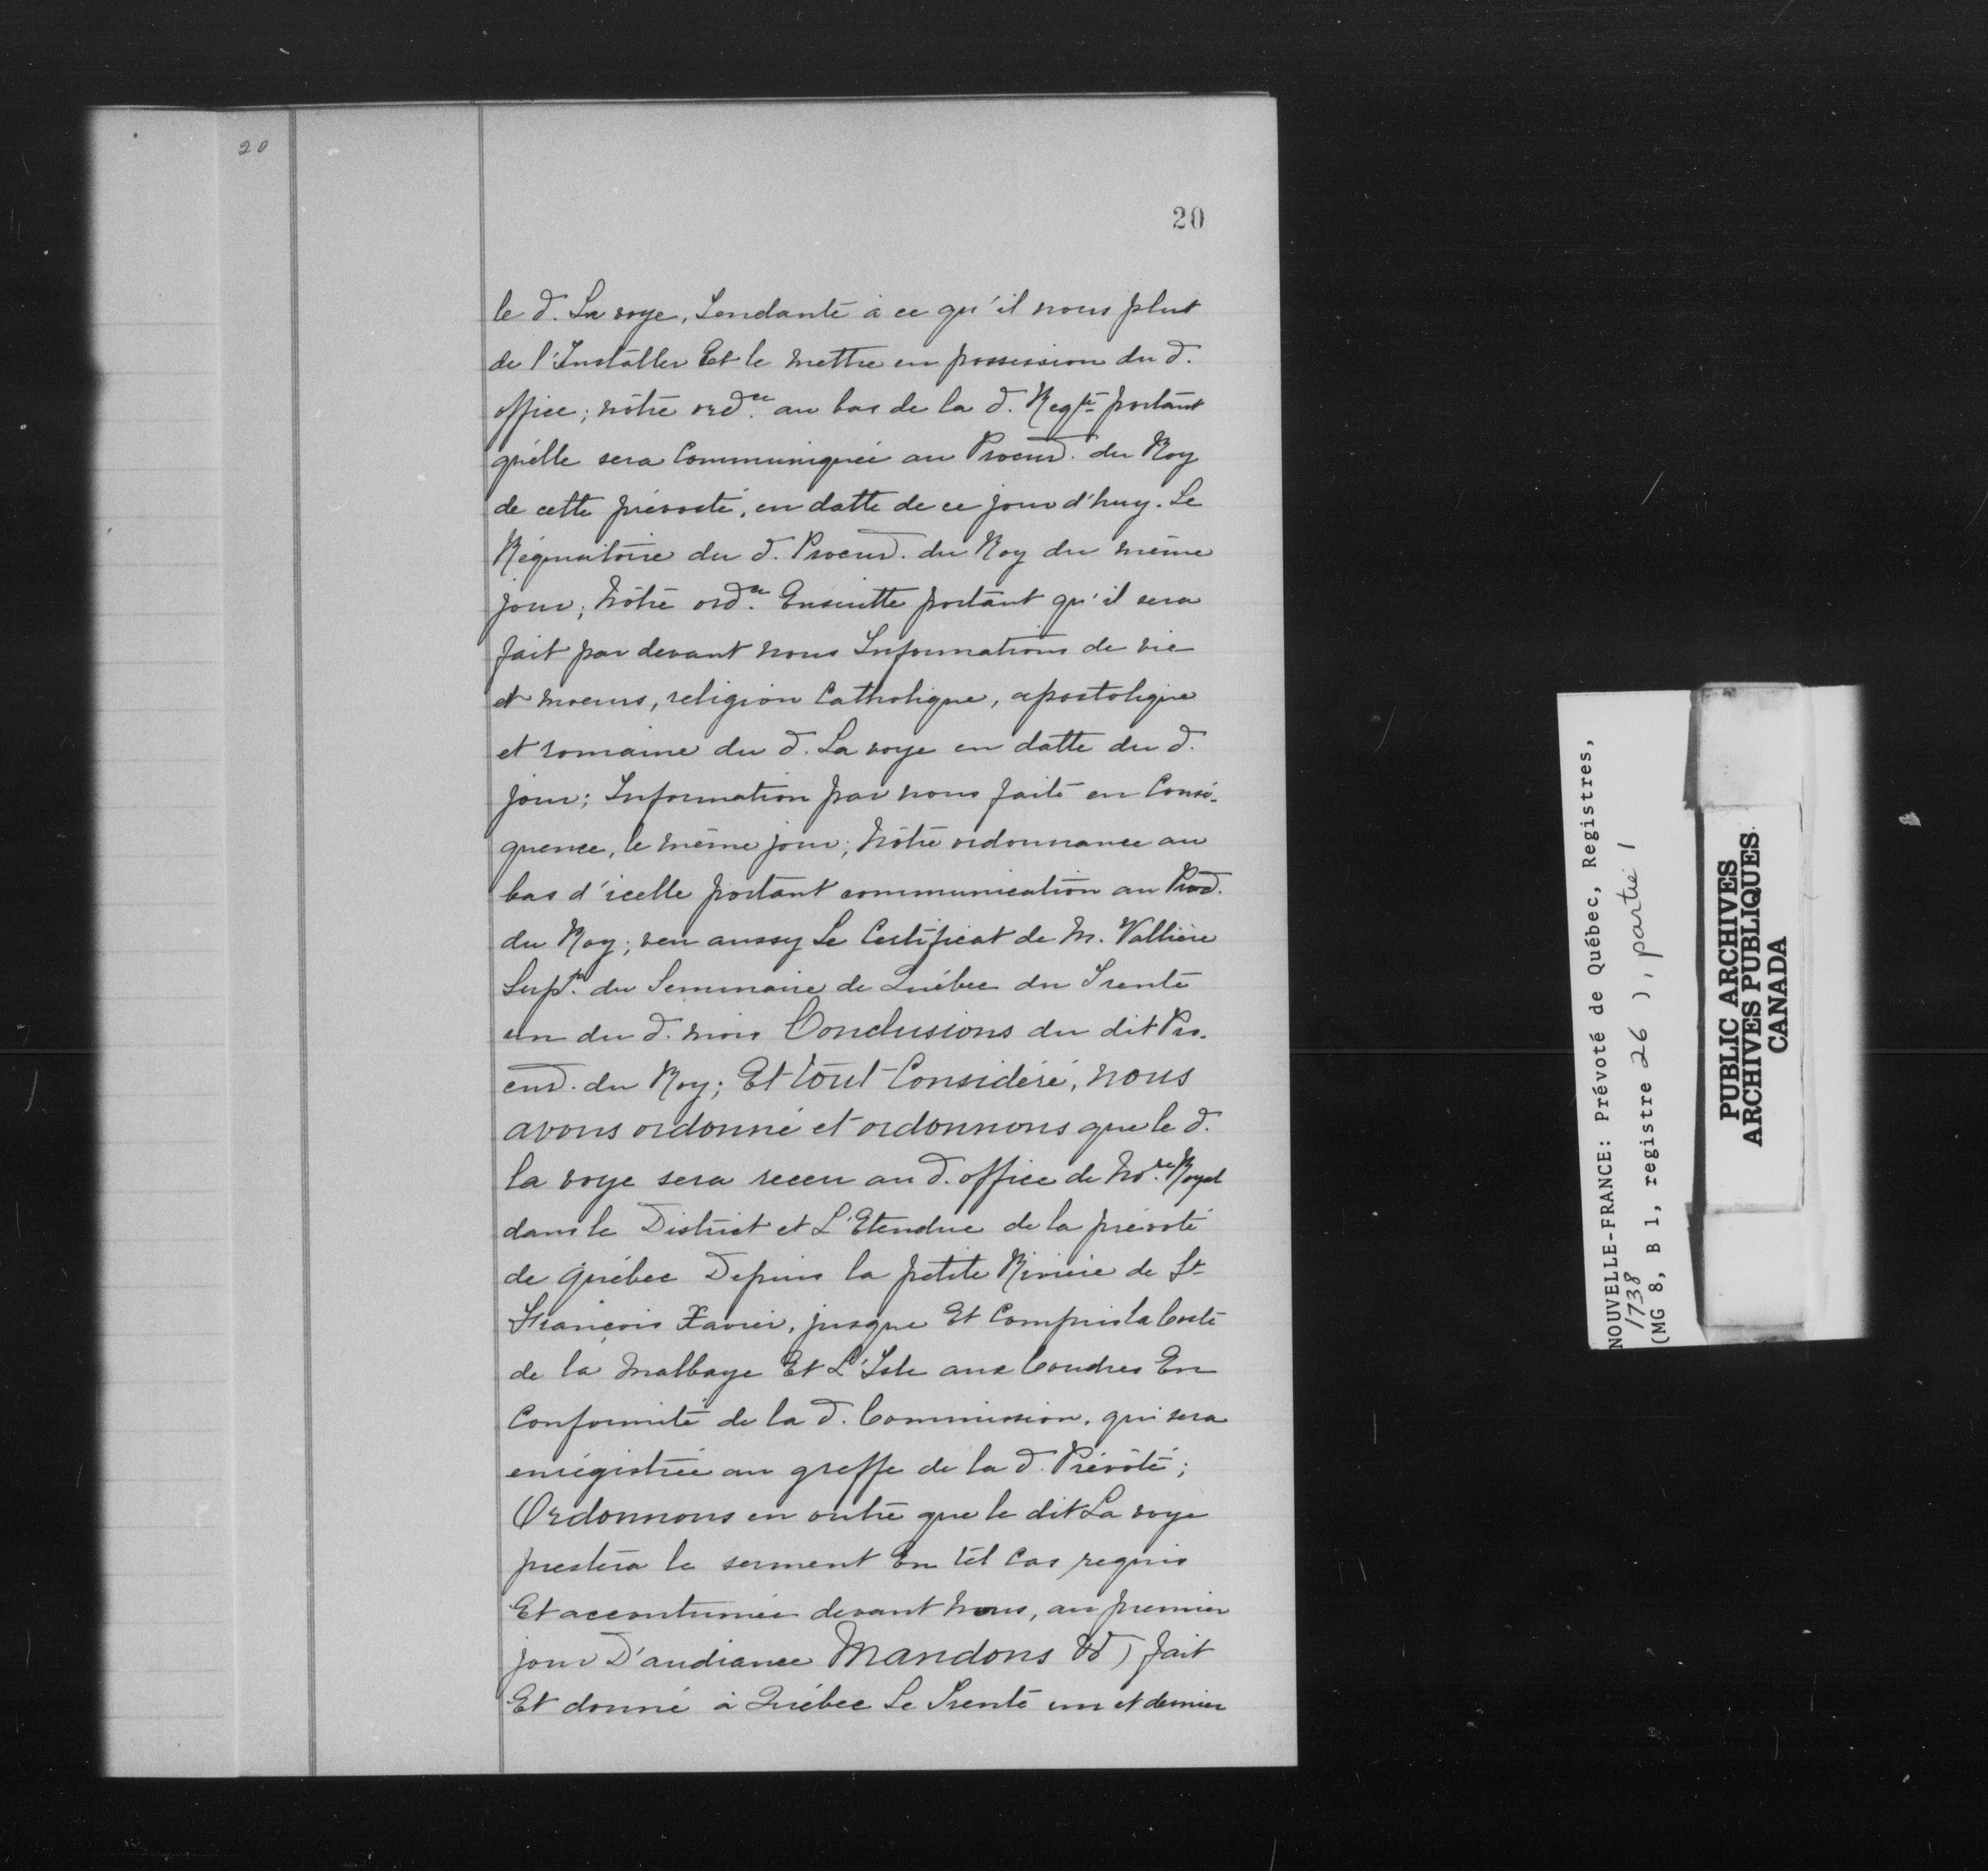 20
20
le d. La voye, Tendante à ce qu'il nous plut
de l'Installer Et le mettre en possession du d.
office; nôtre ord.ce au bas de la d. Reqte portant
qu'elle sera Communiquée au Procur. du Roy
de cette prévosté, en datte de ce jour d'huy. Le
Réquisitoire du d. Procur. du Roy du même
jour; Nôtre ord.ce Ensuitte portant qu'il sera
fait par devant nous Informations de vie
et moeurs, religion Catholique, apostolique
et romaine du d. La voye en datte du d.
jour; Information par nous faite en Consé-
quence, le même jour; Nôtre ordonnance au
bas d'icelle portant communication au Procr.
du Roy; veu aussy Le Certificat de M. Vallière
Supr. du Seminaire de Québec du Trente
un du d. mois Conclusions du dit Pro-
cur. du Roy; Et tout Considéré, nous
avons ordonné et ordonnons que le d.
La voye sera receu au d. office de No.re Royal
dans le District et L'Etendue de la prévoté
de Québec Depuis la petite Rivière de St
François Xavier, jusque Et Compris la Coste
de la Malbaye Et L'Isle aux Coudres En
Conformité de la d. Commission, qui sera
enrégistrée au greffe de la d. Prévôté;
Ordonnons en outre que le dit La voye
prestera le serment En tel Cas requis
Et accoutumée devant Nous, au premier
jour D'audiance Mandons &c) fait
Et donné à Québec Le Trente un et dernier
NOUVELLE-FRANCE: Prévoté de Québec, Registres,
1738
(MG 8, B 1, registre 26 ), partie 1
PUBLIC ARCHIVES
ARCHIVES PUBLIQUES
CANADA